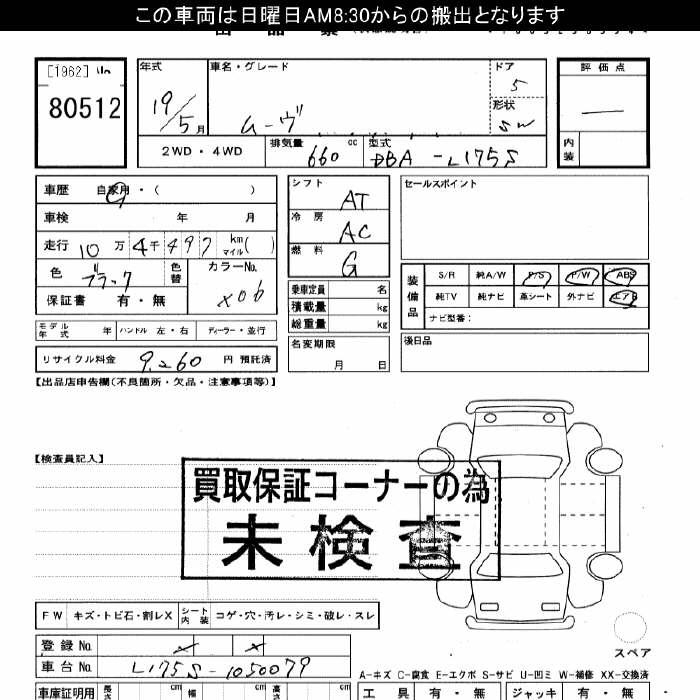 この車両は日曜日AM8:30からの搬出となります
[1962]
80512
年式
19/5月
車名・グレード
ムーヴ
ドア
5
形状
SW
評価点
—
内装
2WD・4WD
排気量 660 cc
型式 DBA-L175S
車歴 自家用・( )
車検 年 月
走行 10万4千497km マイル( )
色 ブラック
色替
カラーNo. X06
保証書 有・無
モデル年式 年 ハンドル 左・右 ディーラー・並行
リサイクル料金 9,260 円 預託済
シフト AT
冷房 AC
燃料 G
乗車定員 名
積載量 kg
総重量 kg
名変期限 月 日
セールスポイント
装備品
S/R 純A/W P/S P/W ABS
純TV 純ナビ 革シート 外ナビ エアB
ナビ型番:
後日品
【出品店申告欄(不良箇所・欠品・注意事項等)】
【検査員記入】
買取保証コーナーの為
未検査
FW キズ・トビ石・割レX シート内装 コゲ・穴・汚レ・シミ・破レ・スレ
スペア
登録No.
車台No. L175S-1050079
A-キズ C-腐食 E-エクボ S-サビ U-凹ミ W-補修 XX-交換済
車庫証明用 長さ cm 幅 cm 高さ cm
工具 有・無 ジャッキ 有・無